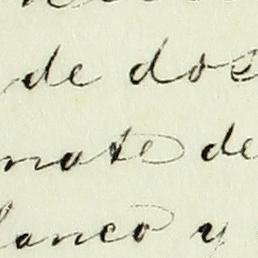 de dos
mate de
lanco y